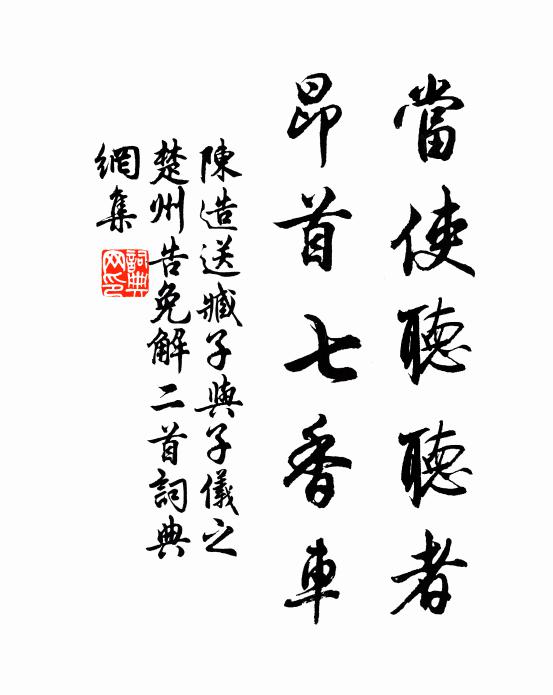 當使聽聽者
昂首七香車
陳造送臧子與子儀之
楚州告免解二首詞典
網集
詞典网印